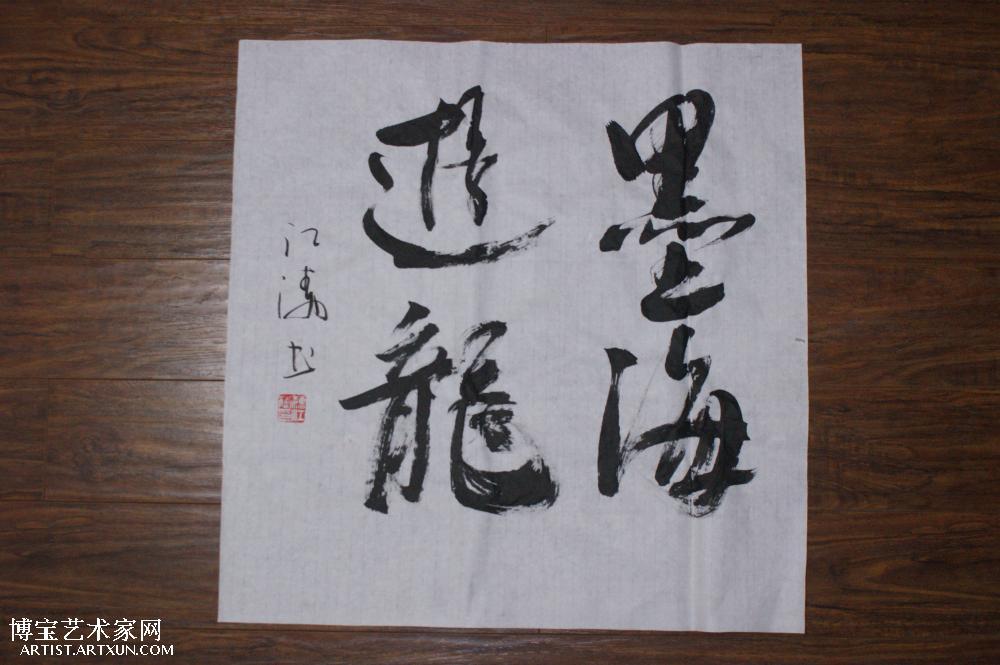 墨海
遊龍
江濤书
博宝艺术家网
ARTIST.ARTXUN.COM